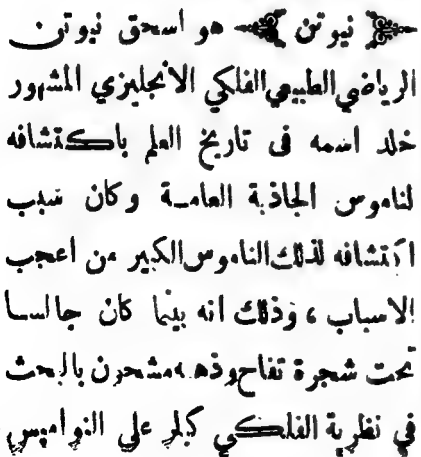 نيوتن هو اسحق نيوتن
الرياضي الطبيعي الفلكي الانجليزي المشهور
خلد اسمه فى تاريخ العلم باكتشافه
لناموس الجاذبة العامة وكان سبب
اكتشافه لذلك الناموس الكبير من اعجب
الاسباب ، وذلك انه بينما كان جالسا
تحت شجرة تفاح وذهنه مشحون بالبحث
في نظرية الفلكي كبلر علي النواميس